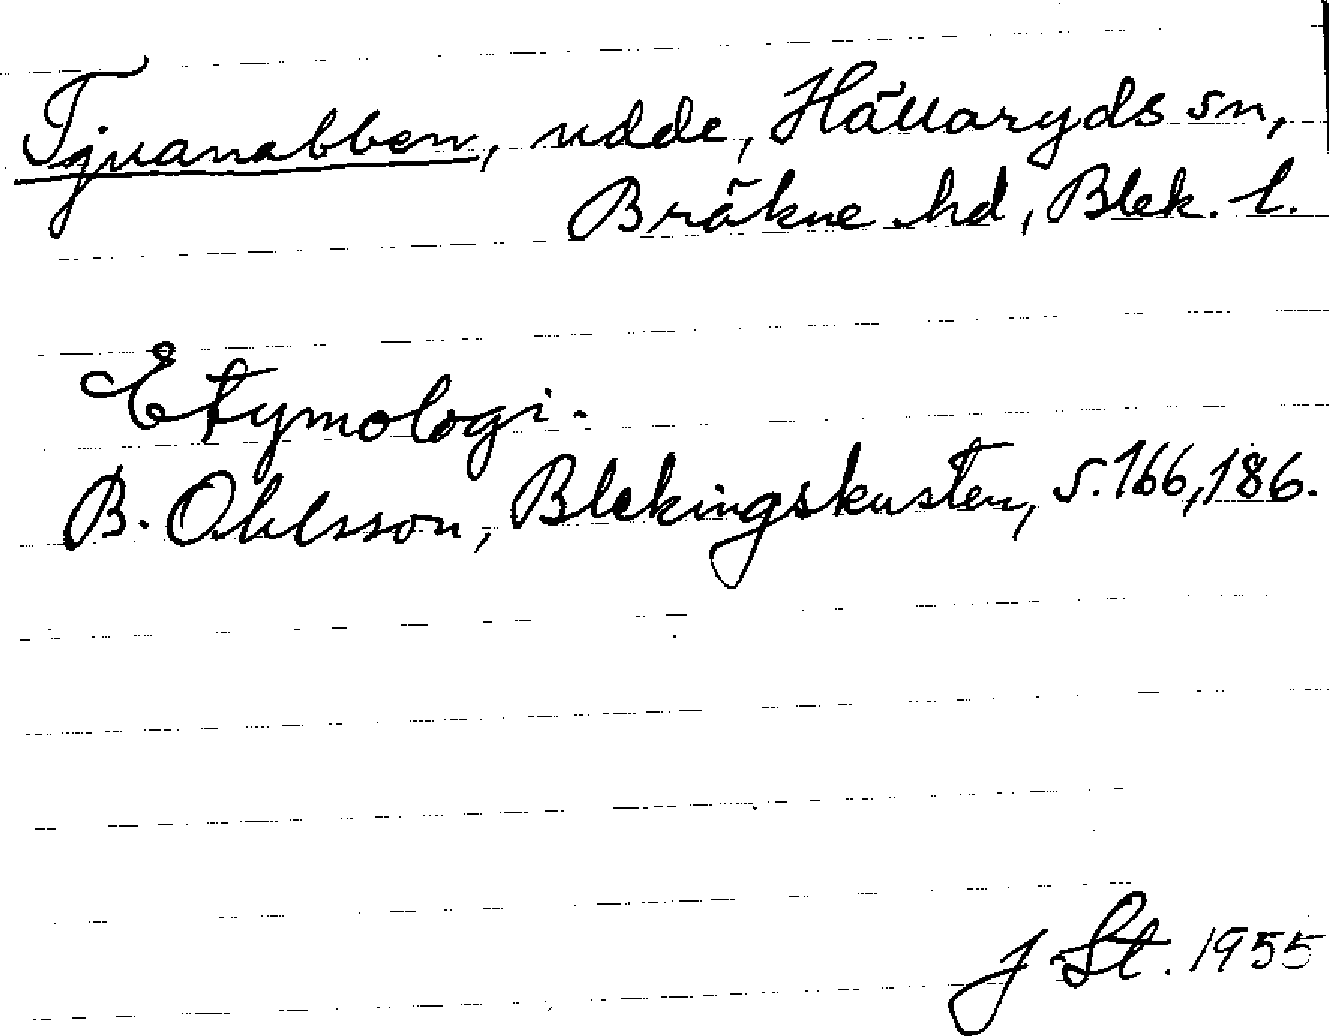 Tjuanabben, udde, Hällaryds sn,
Bräkne hd, Blek. l.
Etymologi.
B. Ohlsson, Blekingskusten, s. 166, 186.
J St. 1955